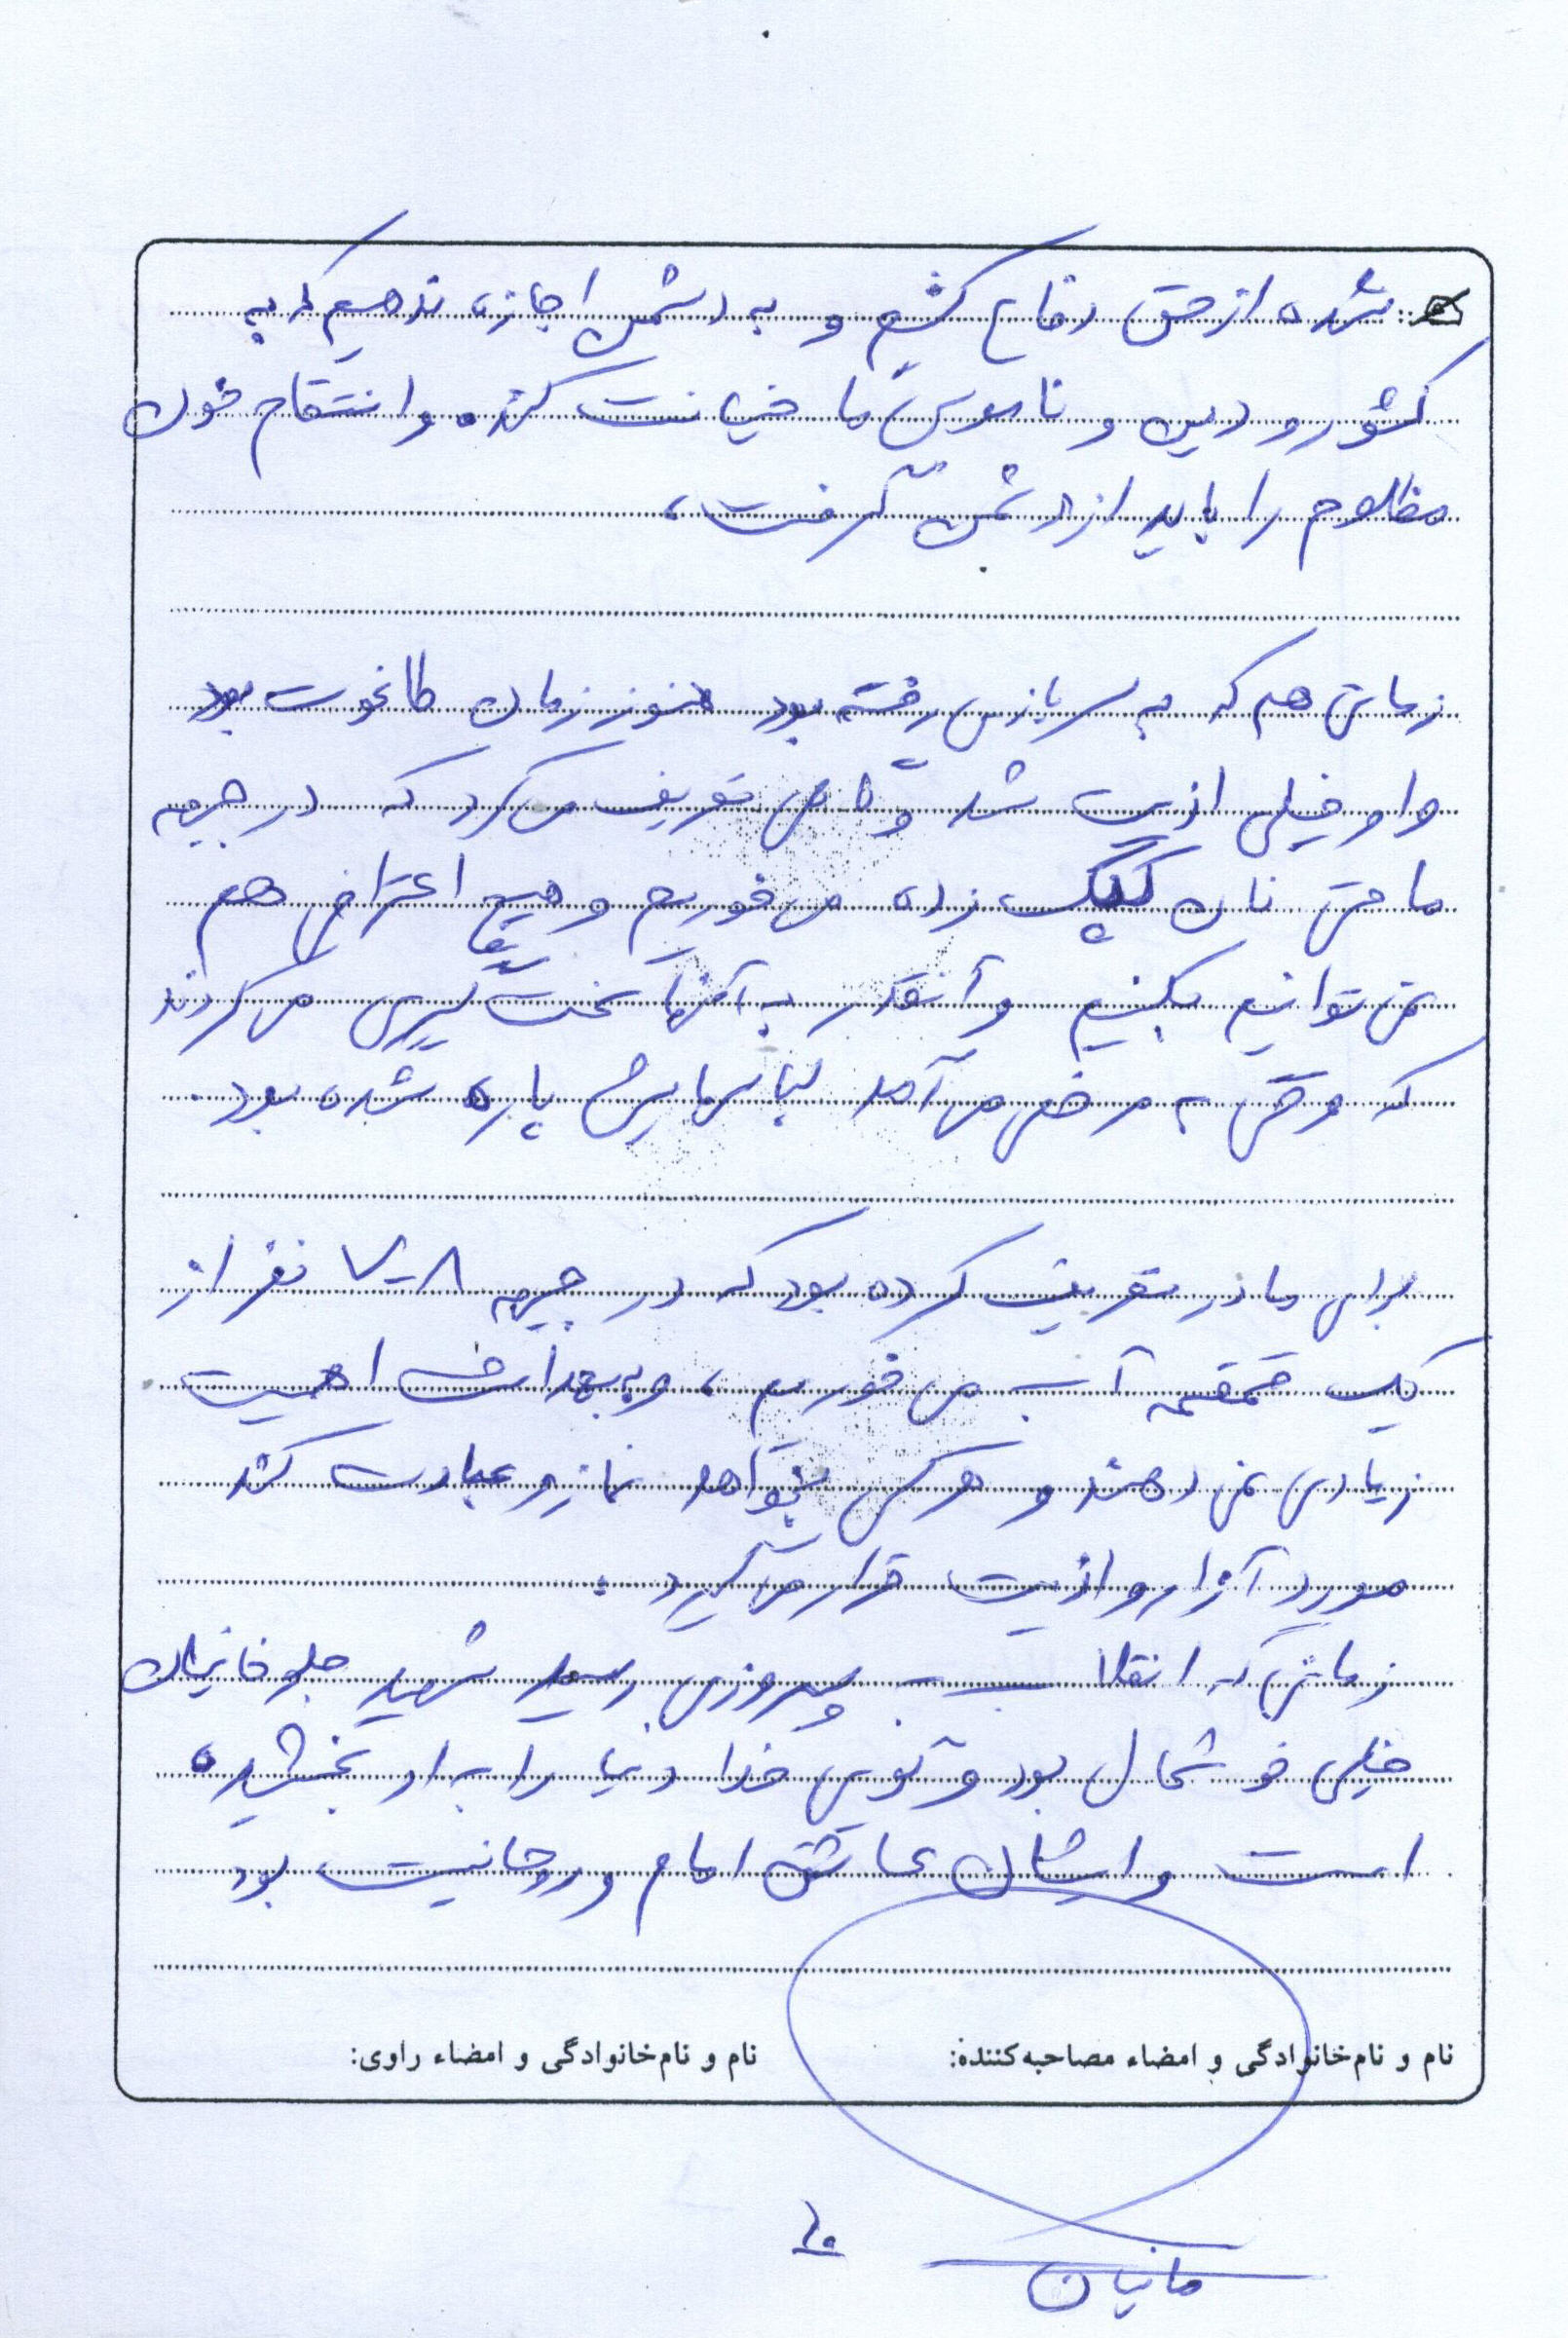 شده از حق دفاع کنیم و به دشمن اجازه ندهیم که به
کشور و دین و ناموس ما خیانت کنده و انتقام خون
مظلوم را باید از دشمن گرفت.
زمانی هم که به سربازی رفته بود هنوز زمان طاغوت بود
و او خیلی اذیت شد و می تعریف می کرد که در جبهه
ما حتی نان کپک زده می خوریم و هیچ اعتراضی هم
نمی توانیم بکنیم و آنقدر به آنها سخت گیری می کردند
که وقتی به مرخصی می آمد لباسهایش پاره شده بود.
برای مادر تعریف کرده بود که در جبهه ۷-۸ نفر از
یک قمقمه آب می خوریم، و به بهداشت اهمیت
زیادی نمی دهند و هر کس بخواهد نماز و عبادت کند
مورد آزار و اذیت قرار می گیرد.
زمانی که انقلاب به پیروزی رسید شهید جلوخانیان
خیلی خوشحال بود و گویی خدا دنیا را به او بخشیده
است و ایشان عاشق امام و روحانیت بود
نام و نام‌خانوادگی و امضاء مصاحبه‌کننده:
نام و نام‌خانوادگی و امضاء راوی:
۱۰